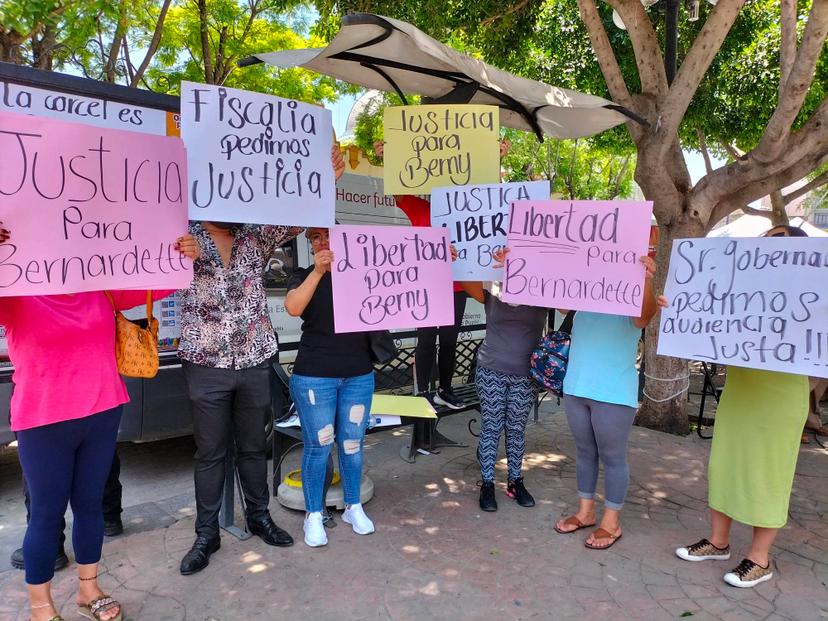 la carcel es
Justicia
Para
Bernardette
Fiscalia
pedimos
Justicia
Justicia
para
Berny
Hacer futu
JUSTICIA
Libertad
para
Berny
Libertad
para
Bernardette
Sr. gobernad
pedimos
audiencia
Justa!!!